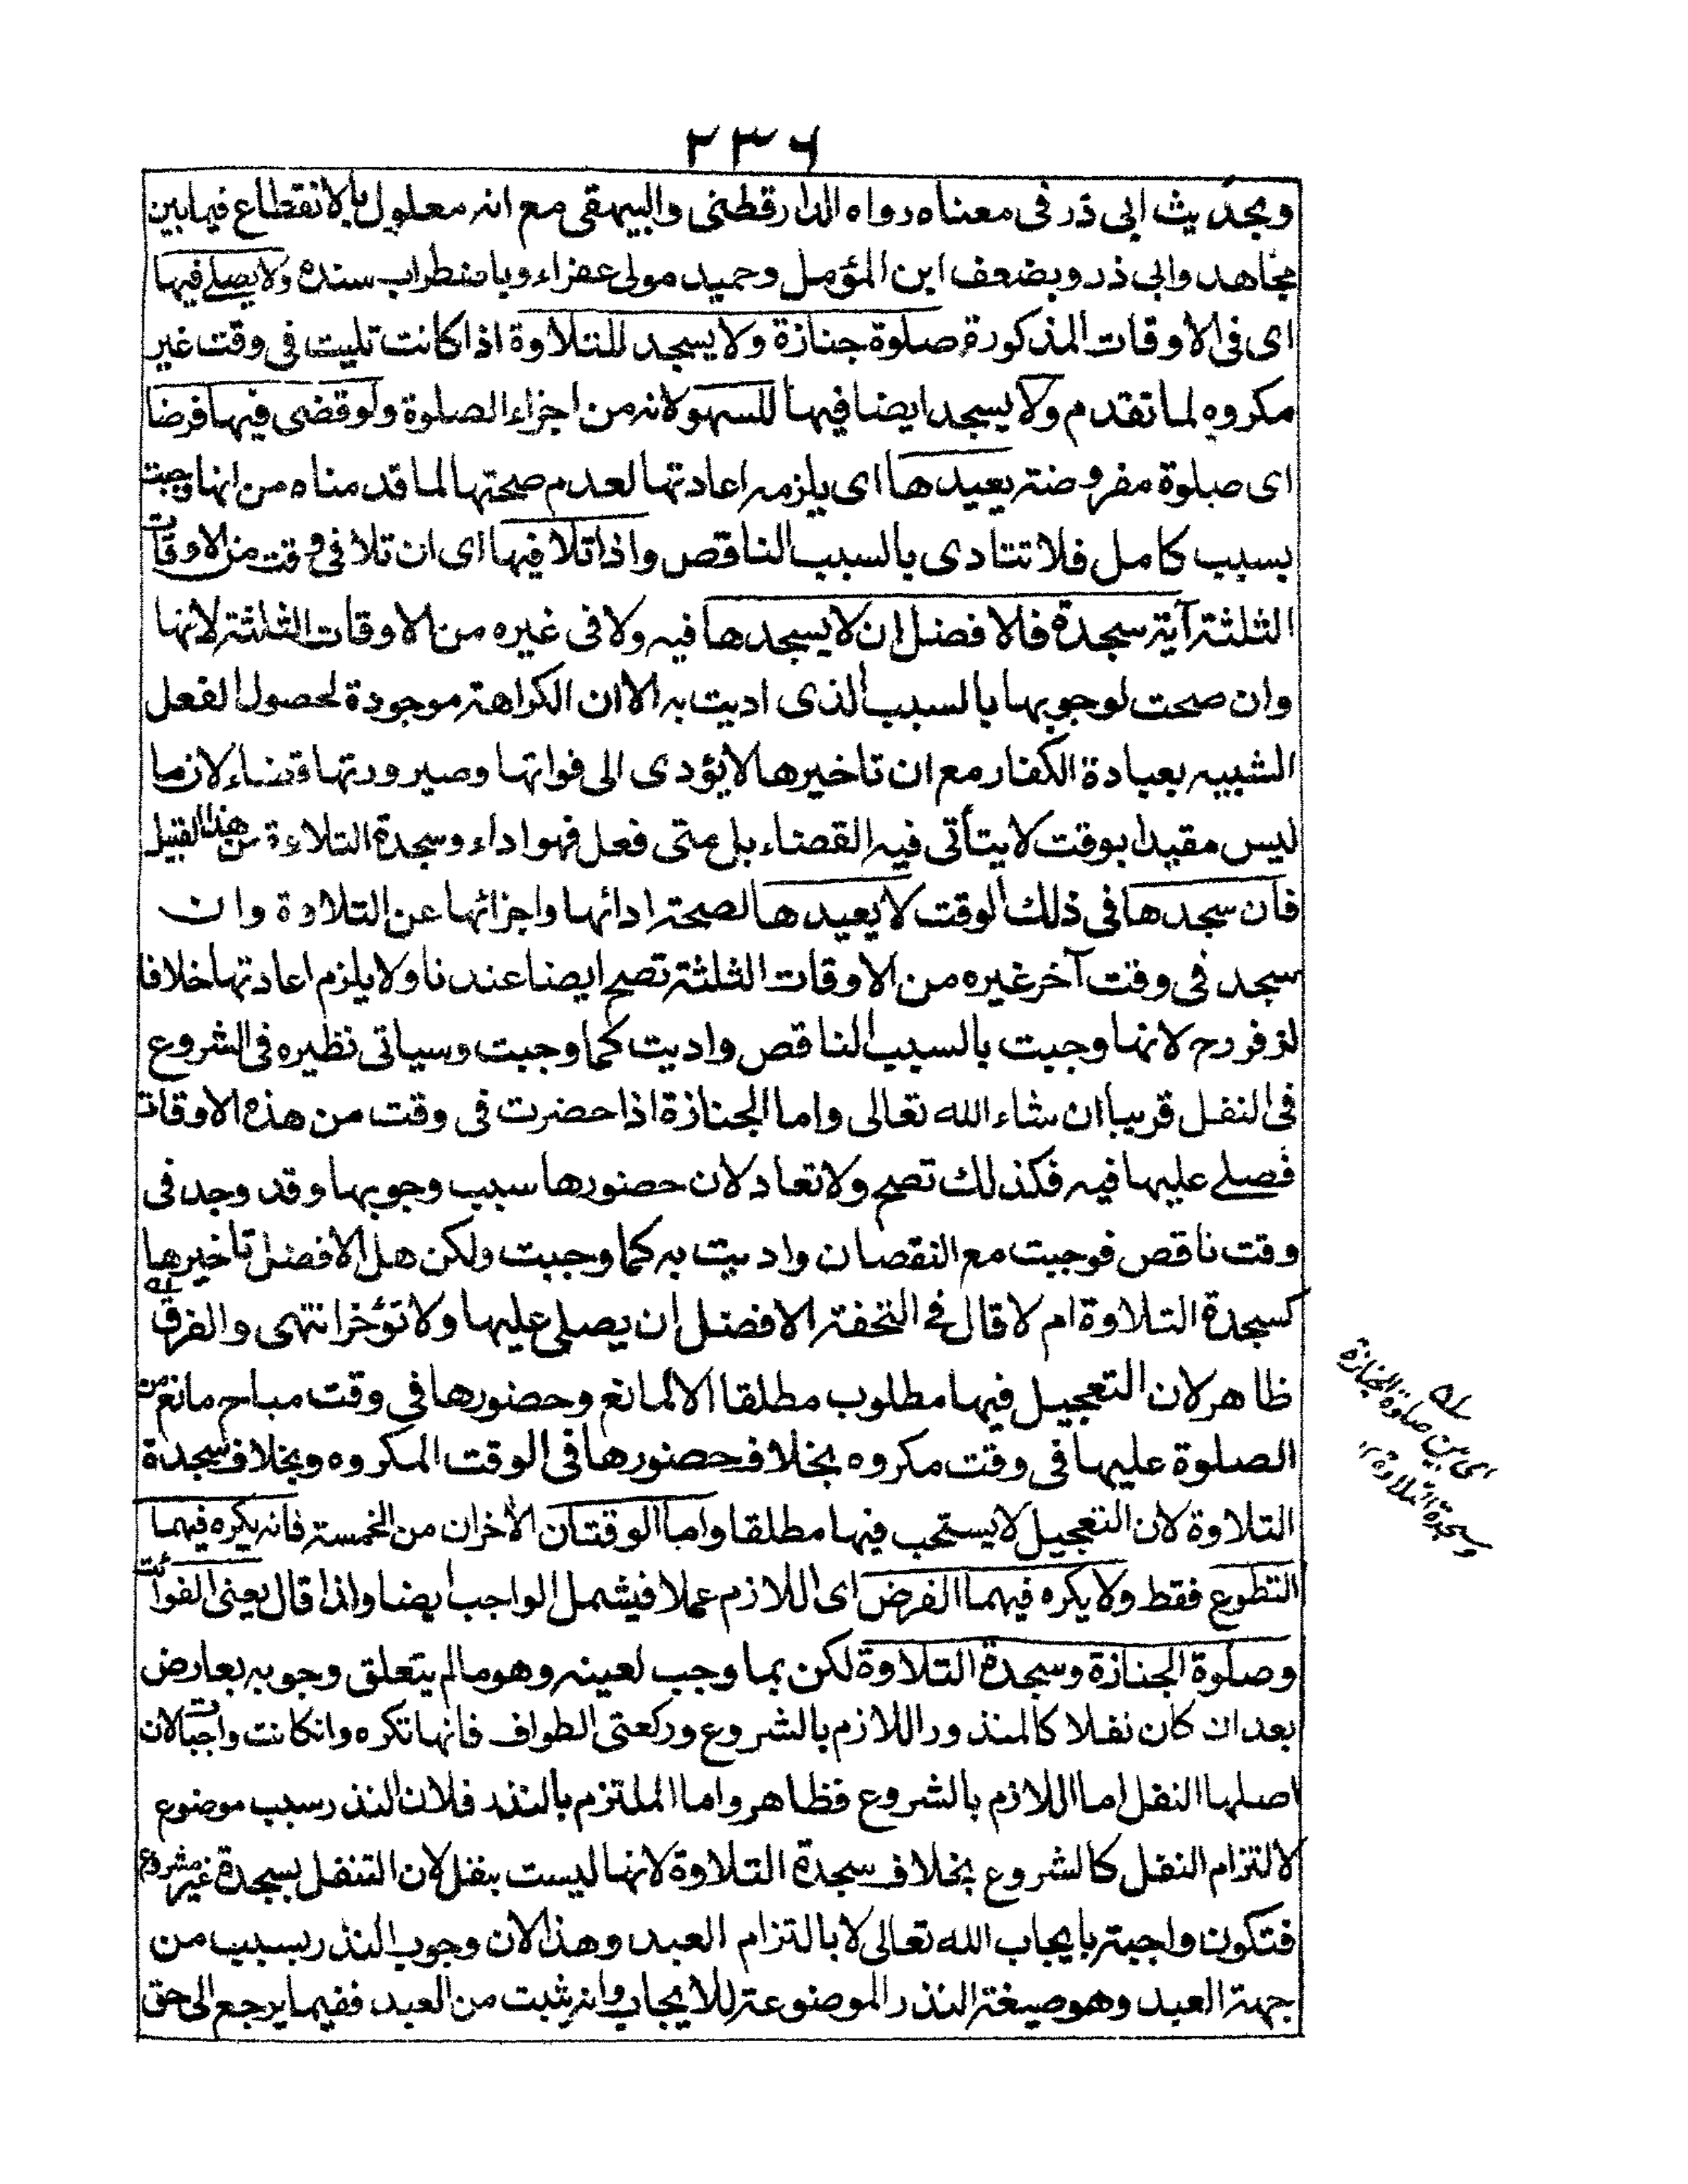 ٢٣٦
وبحديث ابى ذر فى معناه رواه الدارقطنى والبيهقى مع انه معلول بالانقطاع فيما بين
مجاهد وابى ذر وبضعف ابن المؤمل وحميد مولى عفراء وباضطراب سنده ولا يصلے فيها
اى فى الاوقات المذكورة صلوة جنازة ولا يسجد للتلاوة اذا كانت تليت فى وقت غير
مكروه لما تقدم ولا يسجد ايضا فيها للسهو لانه من اجزاء الصلوة ولو قضى فيها فرضا
اى صلوة مفروضة يعيدها اى يلزمه اعادتها لعدم صحتها لما قدمناه من انها وجبت
بسبب كامل فلا تتادى بالسبب الناقص واذا تلا فيها اى ان تلا فى وقت من الاوقات
الثلثة آية سجدة فالافضل ان لا يسجدها فيه ولا فى غيره من الاوقات الثلثة لانها
وان صحت لوجوبها بالسبب الذى اديت به الا ان الكراهة موجودة لحصول الفعل
الشبيه بعبادة الكفار مع ان تاخيرها لا يؤدى الى فواتها وصيرورتها قضاء لان ما
ليس مقيدا بوقت لا يتأتى فيه القضاء بل متى فعل فهو اداء وسجدة التلاءة من هذا القبيل
فان سجدها فى ذلك الوقت لا يعيدها لصحة ادائها واجزائها عن التلاوة وان
سجد فى وقت آخر غيره من الاوقات الثلثة تصح ايضا عندنا ولا يلزم اعادتها خلافا
لزفر رح لانها وجبت بالسبب الناقص واديت كما وجبت وسياتى نظيره فى الشروع
فى النفل قريبا ان شاء الله تعالى واما الجنازة اذا حضرت فى وقت من هذه الاوقات
فصلے عليها فيه فكذلك تصح ولا تعاد لان حضورها سبب وجوبها وقد وجد فى
وقت ناقص فوجبت مع النقصان واديت به كما وجبت ولكن هل الافضل تاخيرها
كسجدة التلاوة ام لا قال فے التحفة الافضل ان يصلى عليها ولا تؤخر انتهى والفرق
ظاهر لان التعجيل فيها مطلوب مطلقا الا لمانع وحضورها فى وقت مباح مانع من
الصلوة عليها فى وقت مكروه بخلاف حضورها فى الوقت المكروه وبخلاف سجدة
التلاوة لان التعجيل لا يستحب فيها مطلقا واما الوقتان الأخران من الخمسة فانه يكره فيهما
التطوع فقط ولا يكره فيهما الفرض اى اللازم عملا فيشمل الواجب ايضا واذا قال يعنى الفوائت
وصلوة الجنازة وسجدة التلاوة لكن بما وجب لعينه وهو ما لم يتعلق وجوبه بعارض
بعد ان كان نفلا كالمنذور اللازم بالشروع وركعتى الطواف فانها تكره وانكانت واجبات لان
اصلها النفل اما اللازم بالشروع فظاهر واما الملتزم بالنذر فلان النذر سبب موضوع
لالتزام النفل كالشروع بخلاف سجدة التلاوة لانها ليست بنفل لان التنفل بسجدة غير مشروع
فتكون واجبة بايجاب الله تعالى لا بالتزام العبد وهذا لان وجوب النذر بسبب من
جهة العبد وهو صيغة النذر الموضوعة للايجاب وانه يثبت من العبد ففيما يرجع الى حق
له
اى بين صلوة الجنازة
وسجدة التلاوة